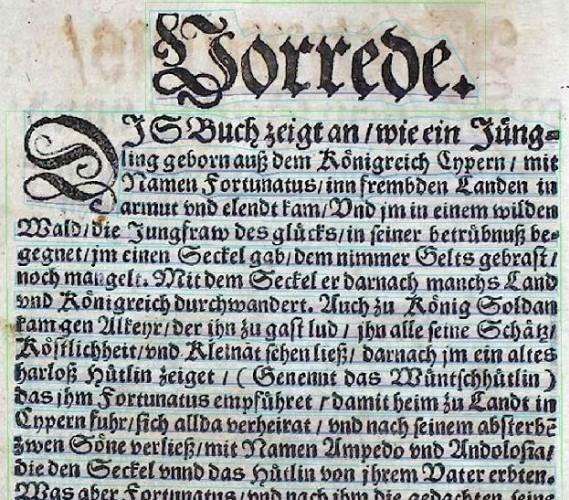 Vorrede.
DIS Buch zeigt an / wie ein Jüng⸗
ling geborn auß dem Königreich Cypern / mit
Namen Fortunatus / inn frembden Landen in
armut vnd elendt kam / Vnd jm in einem wilden
Wald / die Jungfraw des glücks / in seiner betrübnuß be⸗
gegnet / jm einen Seckel gab / dem nimmer Gelts gebrast /
noch mangelt. Mit dem Seckel er darnach manchs Land
vnd Königreich durchwandert. Auch zu König Soldan
kam gen Alkeyr / der ihn zu gast lud / jhn alle seine Schätz /
Köstlichheit / vnd Kleinat sehen ließ / darnach jm ein altes
harloß Hütlin zeiget / ( Genennt das Wüntschhütlin )
das jhm Fortunatus empführet / damit heim zu Landt in
Cypern fuhr / sich allda verheirat / vnd nach seinem absterbē
zwen Söne verließ / mit Namen Ampedo vnd Andolosia /
die den Seckel vnnd das Hütlin von jhrem Vater erbten.
Was aber Fortunatus / vnd nach ihm die gedachten seine